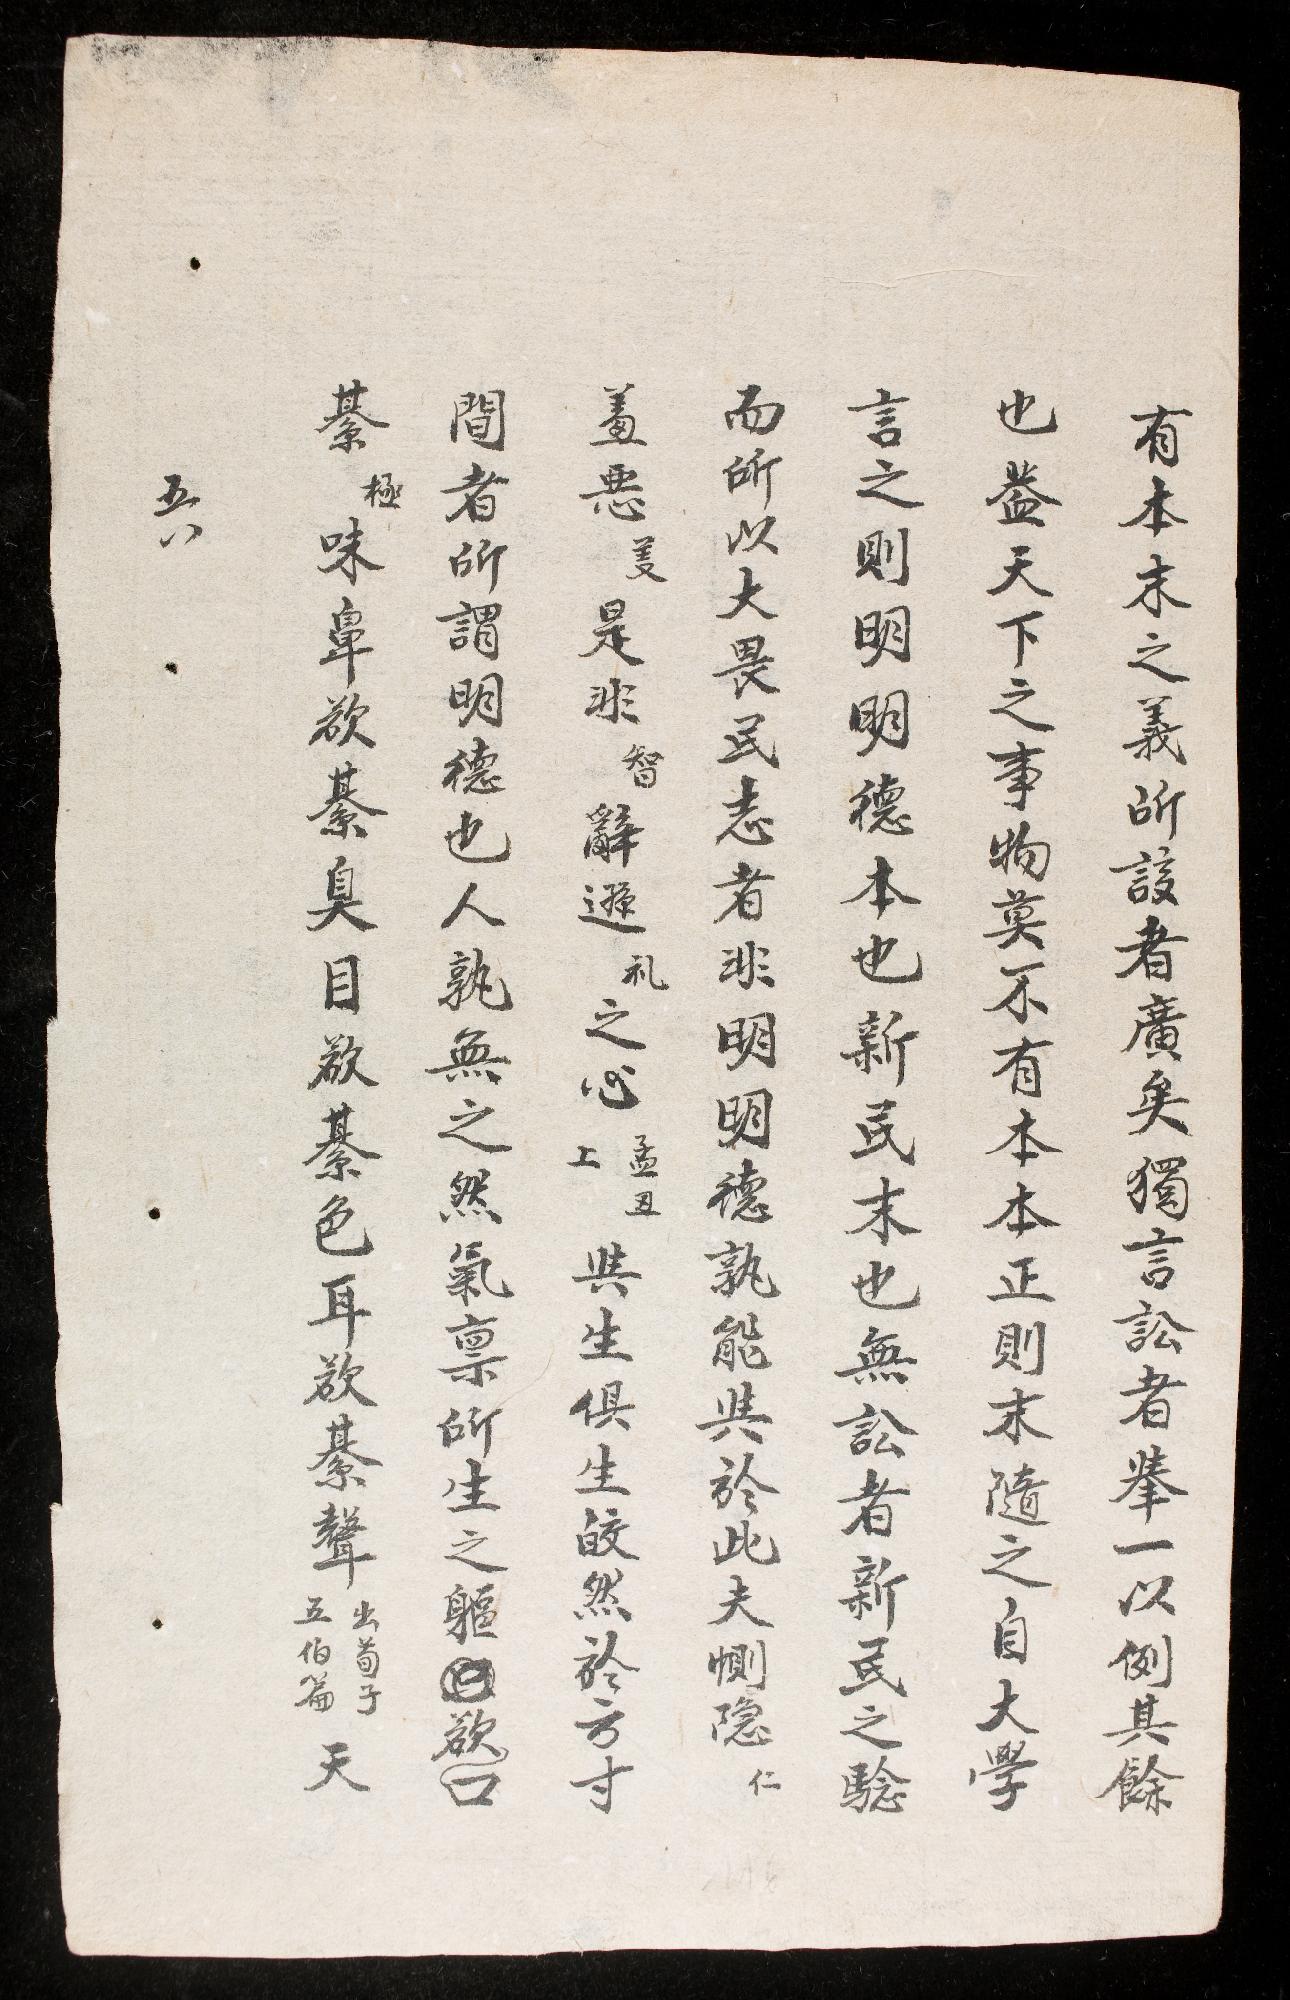 有本末之義所該者廣矣獨言訟者舉一以例其餘
也蓋天下之事物莫不有本本正則末隨之自大學
言之則明明德本也新民末也無訟者新民之驗
而所以大畏民志者非明明德孰能與於此夫惻隐仁
羞悪義是非智辭遜礼之心孟丑上與生俱生皎然於方寸
間者所謂明德也人孰無之然氣禀所生之軀欲口
綦極味鼻欲綦臭目欲綦色耳欲綦聲出荀子五伯篇天
五八